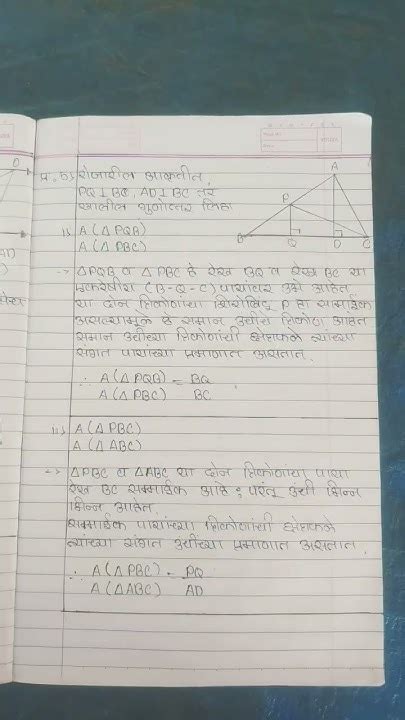 प्र.5) शेजारील आकृतीत,
PQ ⊥ BC, AD ⊥ BC तर
खालील गुणोत्तर लिहा
A
P
B Q D C
i) A(△PQB)
A(△PBC)
-> △PQB व △PBC हे रेख BQ व रेख BC या
एकरेषीय (B-Q-C) पायावर उभे आहेत
या दोन त्रिकोणांचा शिरोबिंदू P हा सामाईक
असल्यामुळे हे समान उंचीचे त्रिकोण आहेत
समान उंचीच्या त्रिकोणांची क्षेत्रफळे त्यांच्या
संगत पायांच्या प्रमाणात असतात.
∴ A(△PQB) = BQ
A(△PBC) BC
ii) A(△PBC)
A(△ABC)
-> △PBC व △ABC या दोन त्रिकोणाचा पाया
रेख BC सामाईक आहे; परंतू उंची भिन्न
भिन्न आहेत
सामाईक पायांच्या त्रिकोणांची क्षेत्रफळे
त्यांच्या संगत उंचीच्या प्रमाणात असतात.
∴ A(△PBC) = PQ
A(△ABC) AD